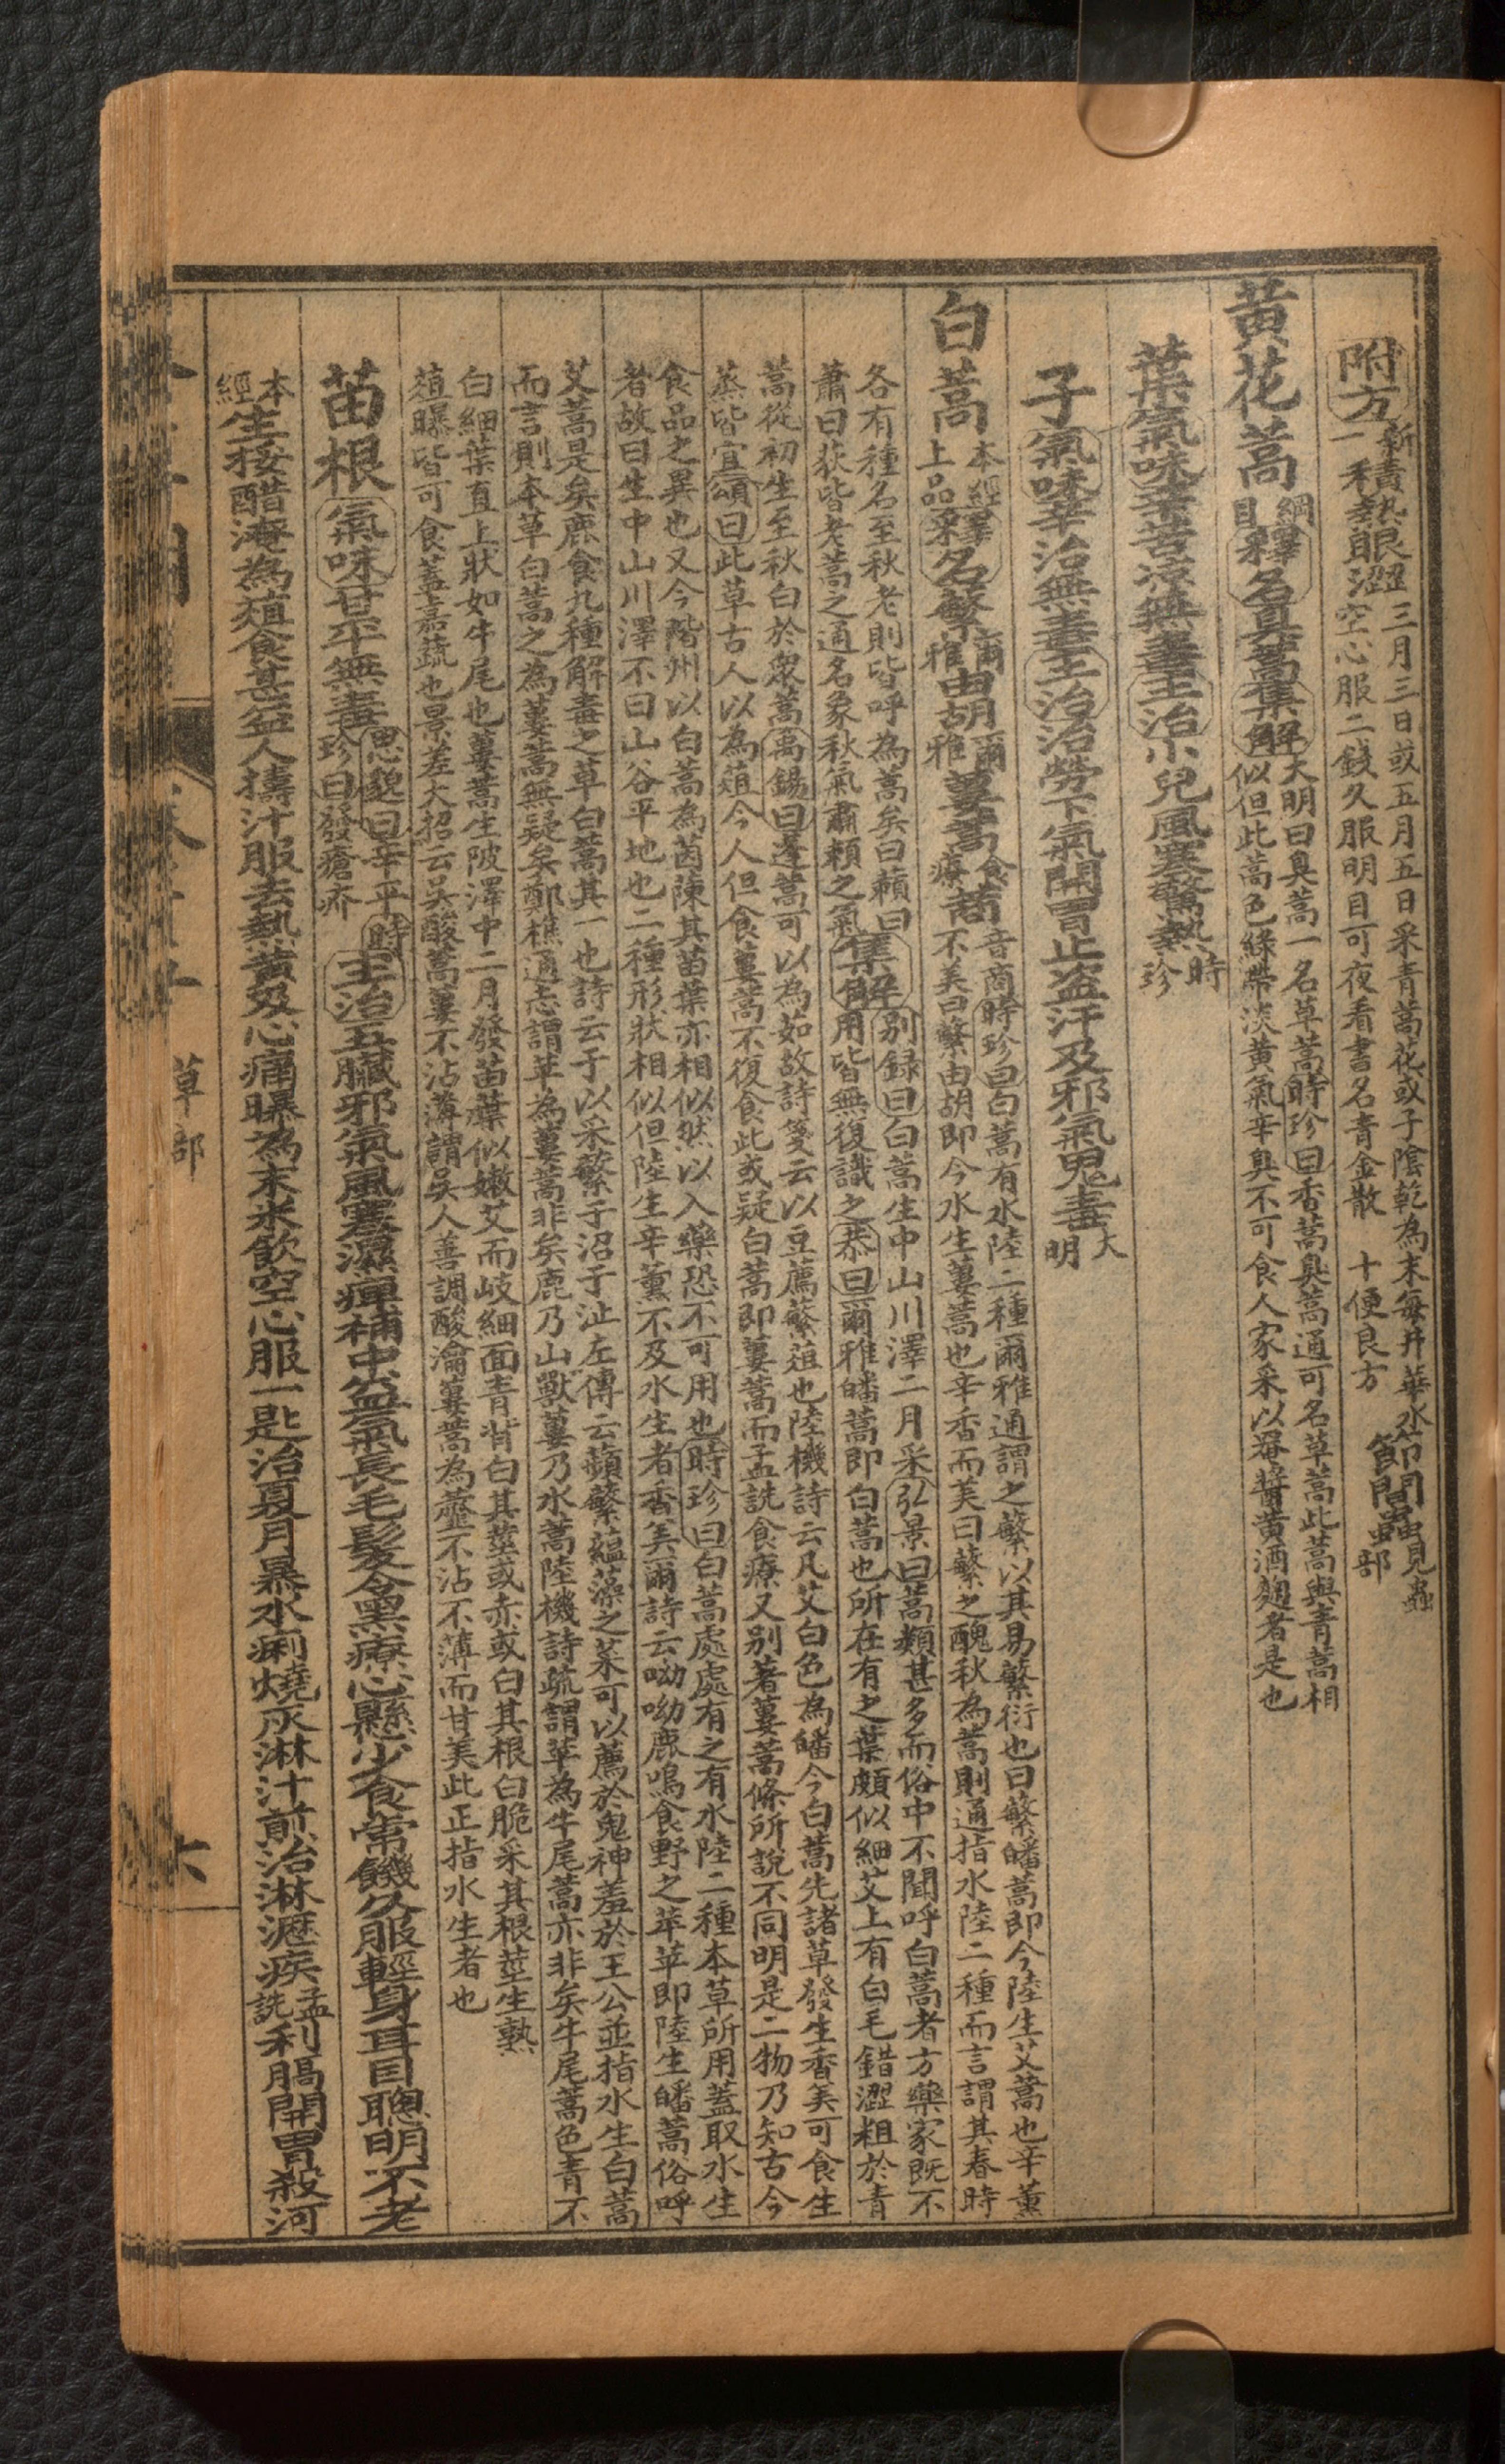 附方新一積熱眼澀三月三日或五月五日采青蒿花或子陰乾為末每井華水空心服二錢久服明目可夜看書名青金散 十便良方 節間蟲見蟲部
黃花蒿綱目釋名臭蒿集解大明曰臭蒿一名草蒿時珍曰香蒿臭蒿通可名草蒿此蒿與青蒿相似但此蒿色綠帶淡黃氣辛臭不可食人家采以罨醬黃酒麴者是也
葉氣味辛苦涼無毒主治小兒風寒驚熱時珍
子氣味辛治無毒主治治勞下氣開胃止盜汗及邪氣鬼毒大明
白蒿本經上品釋名蘩爾雅由胡爾雅蔞蒿食療蔏音商時珍曰白蒿有水陸二種爾雅通謂之蘩以其易蘩衍也曰蘩皤蒿即今陸生艾蒿也辛薰不美曰蘩由胡即今水生蔞蒿也辛香而美曰蘩之醜秋為蒿則通指水陸二種而言謂其春時
各有種名至秋老則皆呼為蒿矣曰藾曰蕭曰荻皆老蒿之通名象秋氣肅賴之氣集解別錄曰白蒿生中山川澤二月采弘景曰蒿類甚多而俗中不聞呼白蒿者方藥家既不用皆無復識之恭曰爾雅皤蒿即白蒿也所在有之葉頗似細艾上有白毛錯澀粗於青
蒿從初生至秋白於眾蒿禹錫曰蓬蒿可以為茹故詩箋云以豆薦蘩菹也陸機詩云凡艾白色為皤今白蒿先諸草發生香美可食生蒸皆宜頌曰此草古人以為菹今人但食蔞蒿不復食此或疑白蒿即蔞蒿而孟詵食療又別著蔞蒿條所說不同明是二物乃知古今
食品之異也又今階州以白蒿為茵陳其苗葉亦相似然以入藥恐不可用也時珍曰白蒿處處有之有水陸二種本草所用蓋取水生者故曰生中山川澤不曰山谷平地也二種形狀相似但陸生辛薰不及水生者香美爾詩云呦呦鹿鳴食野之苹苹即陸生皤蒿俗呼
艾蒿是矣鹿食九種解毒之草白蒿其一也詩云于以采蘩于沼于沚左傳云蘋蘩蘊藻之菜可以薦於鬼神羞於王公並指水生白蒿而言則本草白蒿之為蔞蒿無疑矣鄭樵通志謂苹為蔞蒿非矣鹿乃山獸蔞乃水蒿陸機詩疏謂苹為牛尾蒿亦非矣牛尾蒿色青不
白細葉直上狀如牛尾也蔞蒿生陂澤中二月發苗葉似嫩艾而岐細面青背白其莖或赤或白其根白脆采其根莖生熟菹曝皆可食蓋嘉蔬也景差大招云吳酸蒿蔞不沾薄謂吳人善調酸瀹蔞蒿為虀不沾不薄而甘美此正指水生者也
苗根氣味甘平無毒思邈曰辛平時珍曰發瘡疥主治五臟邪氣風寒濕痺補中益氣長毛髮令黑療心懸少食常饑久服輕身耳目聰明不老
本經生挼醋淹為菹食甚益人擣汁服去熱黃及心痛曝為末米飲空心服一匙治夏月暴水痢燒灰淋汁煎治淋瀝疾孟詵利膈開胃殺河
草部
六